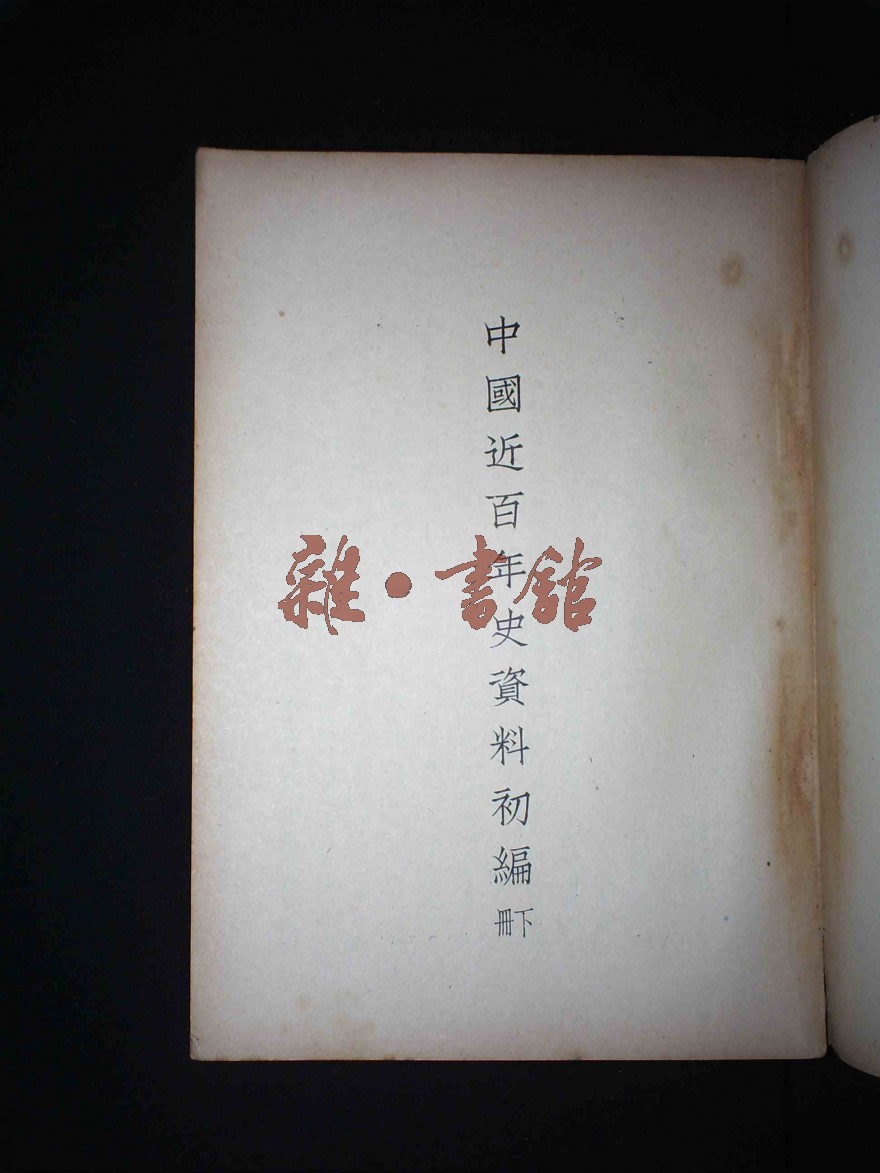 中國近百年史資料初編
下冊
雜·書館